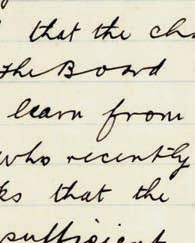 that the
the Board
learn from
who recently
that the
sufficient